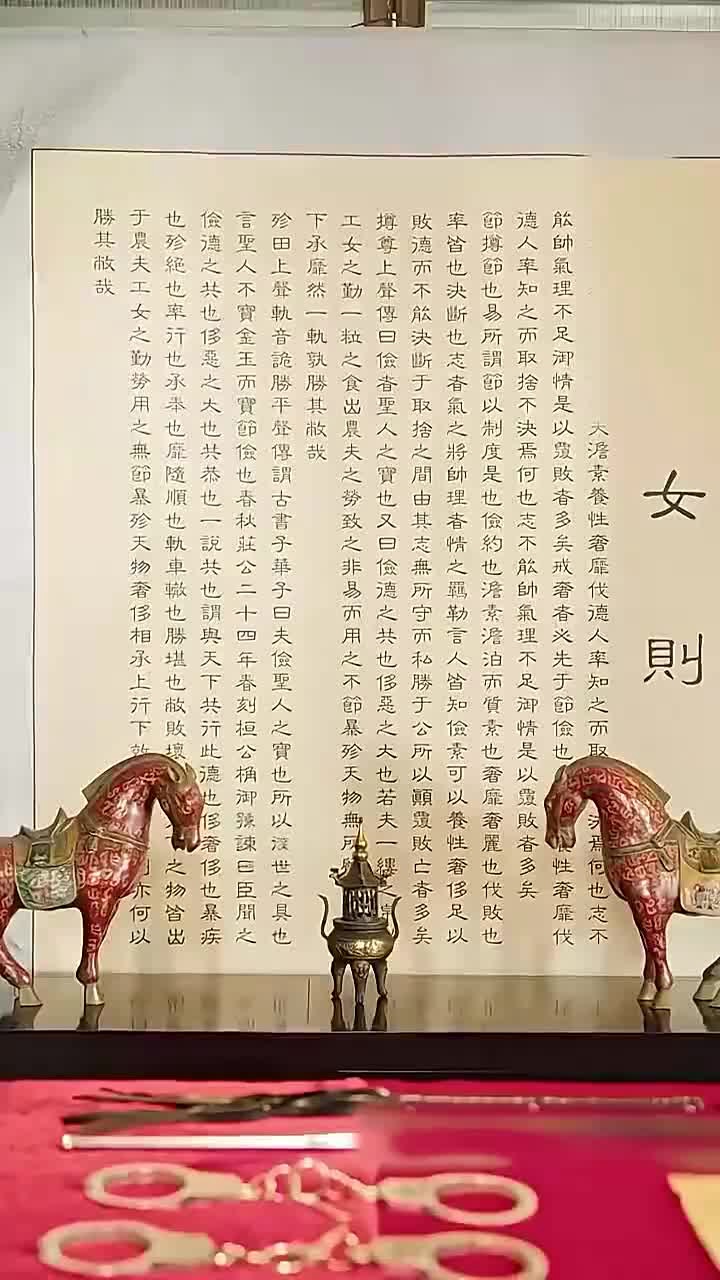 女則
夫澹素養性奢靡伐德人率知之而取決焉何也志不
能帥氣理不足御情是以覆敗者多矣戒奢者必先于節儉也養性奢靡伐
德人率知之而取捨不決焉何也志不能帥氣理不足御情是以覆敗者多矣
節撙節也易所謂節以制度是也儉約也澹素澹泊而質素也奢靡奢麗也伐敗也
率皆也決斷也志者氣之將帥理者情之羈勒言人皆知儉素可以養性奢侈足以
敗德而不能決斷于取捨之間由其志無所守而私勝于公所以顛覆敗亡者多矣
撙尊上聲傳曰儉者聖人之寶也又曰儉德之共也侈惡之大也若夫一縷之帛
工女之勤一粒之食出農夫之勞致之非易而用之不節暴殄天物無所
下承靡然一軌孰勝其敝哉
殄田上聲軌音詭勝平聲傳謂古書子華子曰夫儉聖人之寶也所以世之具也
言聖人不寶金玉而寶節儉也春秋莊公二十四年春刻桓公桷御孫諫曰臣聞之
儉德之共也侈惡之大也共恭也一說共也謂與天下共行此德也侈奢侈也暴疾
也殄絕也率行也承奉也靡隨順也軌車轍也勝堪也敝敗壞之物皆出
于農夫工女之勤勞用之無節暴殄天物奢侈相承上行下效亦何以
勝其敝哉